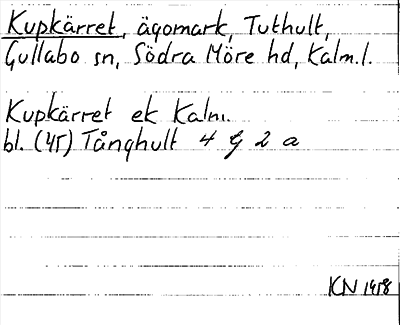 Kupkärret, ägomark, Tuthult,
Gullabo sn, Södra Möre hd, Kalm.l.
Kupkärret ek Kalm.
bl. (45) Tånghult 4 G 2 a
KN 1958